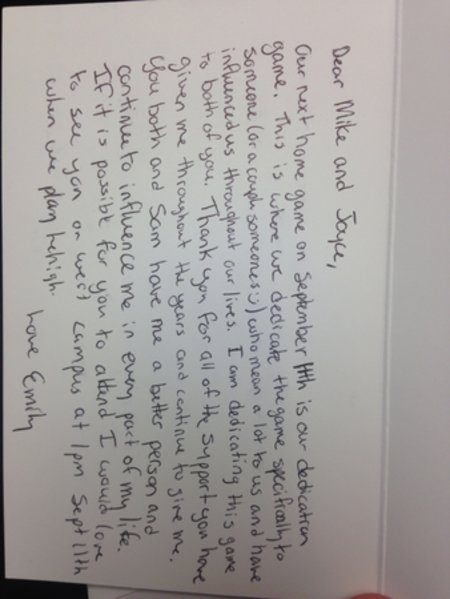 Dear Mike and Joyce,
Our next home game on September 11th is our dedication
game. This is where we dedicate the game specifically to
someone (or a couple someones :)) who mean a lot to us and have
influenced us throughout our lives. I am dedicating this game
to both of you. Thank you for all of the support you have
given me throughout the years and continue to give me.
You both and Sam have me a better person and
continue to influence me in every part of my life.
If it is possible for you to attend I would love
to see you on west campus at 1pm Sept 11th
when we play Lehigh.
Love Emily